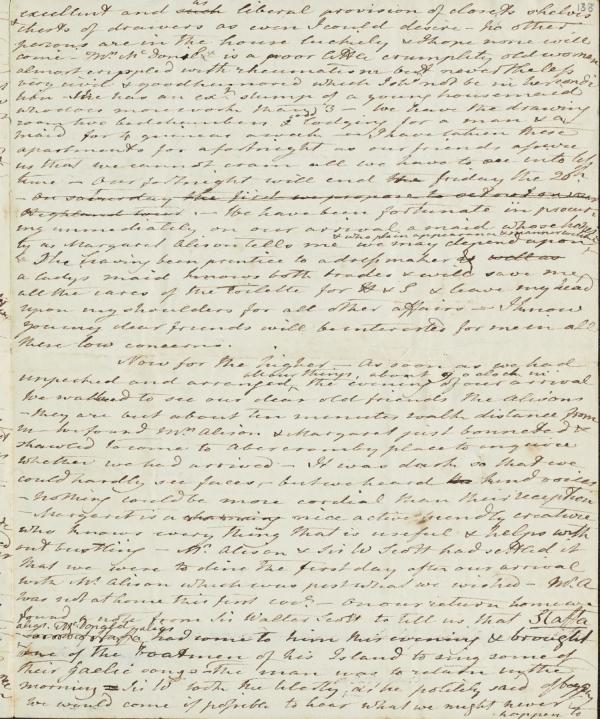 138
as
excellent and such liberal provision of closets shelves
chests of drawers as even I could desire - No other
persons are in the house luckily & I hope none will
come - Mrs McDonald is a poor little crumplety old woman
almost crippled with rheumatism but nevertheless
very civil & goodhumoured which I shd not be in her condi
tion She has an exct stump of a young housemaid
who does more work than any 3 - We have the drawing
room two bedchambers & lodging for a man & a
maid for 4 guineas a week - I have taken these
apartments for a fortnight as our friends assure
us that we cannot cram all we have to see into less
time - Our fortnight will end the friday the 20th
- On saturday the first we propose to set out on our
Highland tour - We have been fortunate in procur
ing immediately on our arrival a maid whose hones
ty as Margaret Alison tells me we may depend upon
& She having been prentice to a dressmaker & well as
a ladys maid knows both trades & will save me
all the cares of the toilette for H & S & leave my head
upon my shoulders for all other affairs - I know
you my dear friends will be interested for me in all
these low concerns.
Now for the higher - As soon as we had
all our things, about 9 o clock in
unpacked and arranged, the evening of our arrival
We walked to see our dear old friends the Alisons
- they are but about ten minutes walk distance from
us - We found Mrs Alison & Margaret just bonneted &
shawled to come to Abercromby place to inquire
whether we had arrived - It was dark so that we
could hardly see faces, but we heard kind voices
- Nothing could be more cordial than their reception
- Margaret is a charming nice active friendly creature
who knows every thing that is useful & helps with
out bustling - Mr Alison & Sir W Scott had settled it
that we were to dine the first day after our arrival
with Mr Alison which was just what we wished - Mr A
was not at home this first eveg - On our return home we
found a note from Sir Walter Scott to tell us that Staffa
had come to him this evening & brought
one of the boatmen of his Island to sing some of
their Gaelic songs - the man was to return in the
morning = Sir W took the liberty, as he politely said of begging
we would come if possible to hear what we might never
happen to